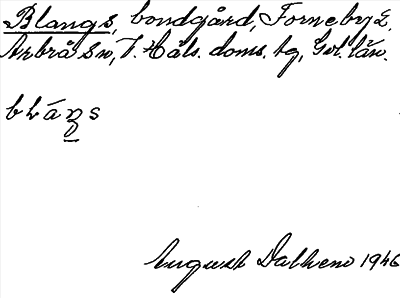 Blangs, bondgård, Forneby 2,
Arbrå Sn, V. Häls. doms. tg, Gvl. län.
bláŋs
August Dalheno 1946